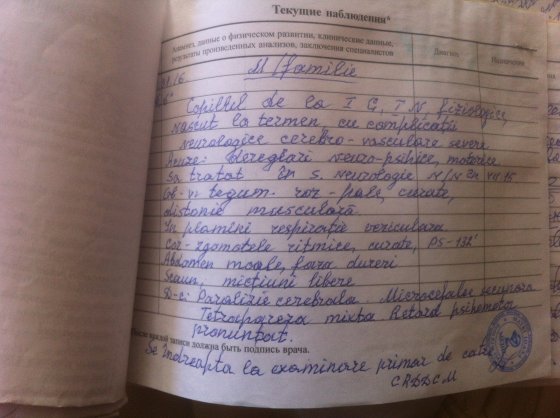 Текущие наблюдения*
Анамнез, данные о физическом развитии, клинические данные,
результаты произведенных анализов, заключения специалистов
Диагноз
Назначения
M/familie
Copilul de la I G, I N, fiziologic,
născut la termen, cu complicații
neurologice cerebro-vasculare severe
Acuze: dereglări neuro-psihice, motorice
Sa tratat în s. neurologie N/N
Ob-v tegum. roz-pale, curate,
distonie musculară
În plamîni respirație veziculară
Cor-zgomotele ritmice, curate, PS-132'
Abdomen moale, fara dureri
Scaun, micțiuni libere
D-c: Paralizie cerebrala. Microcefalie secundara
Tetrapareza mixta Retard psihomotor
pronunțat.
После каждой записи должна быть подпись врача.
Se îndreapta la examinare primar de catre
CRDDCM